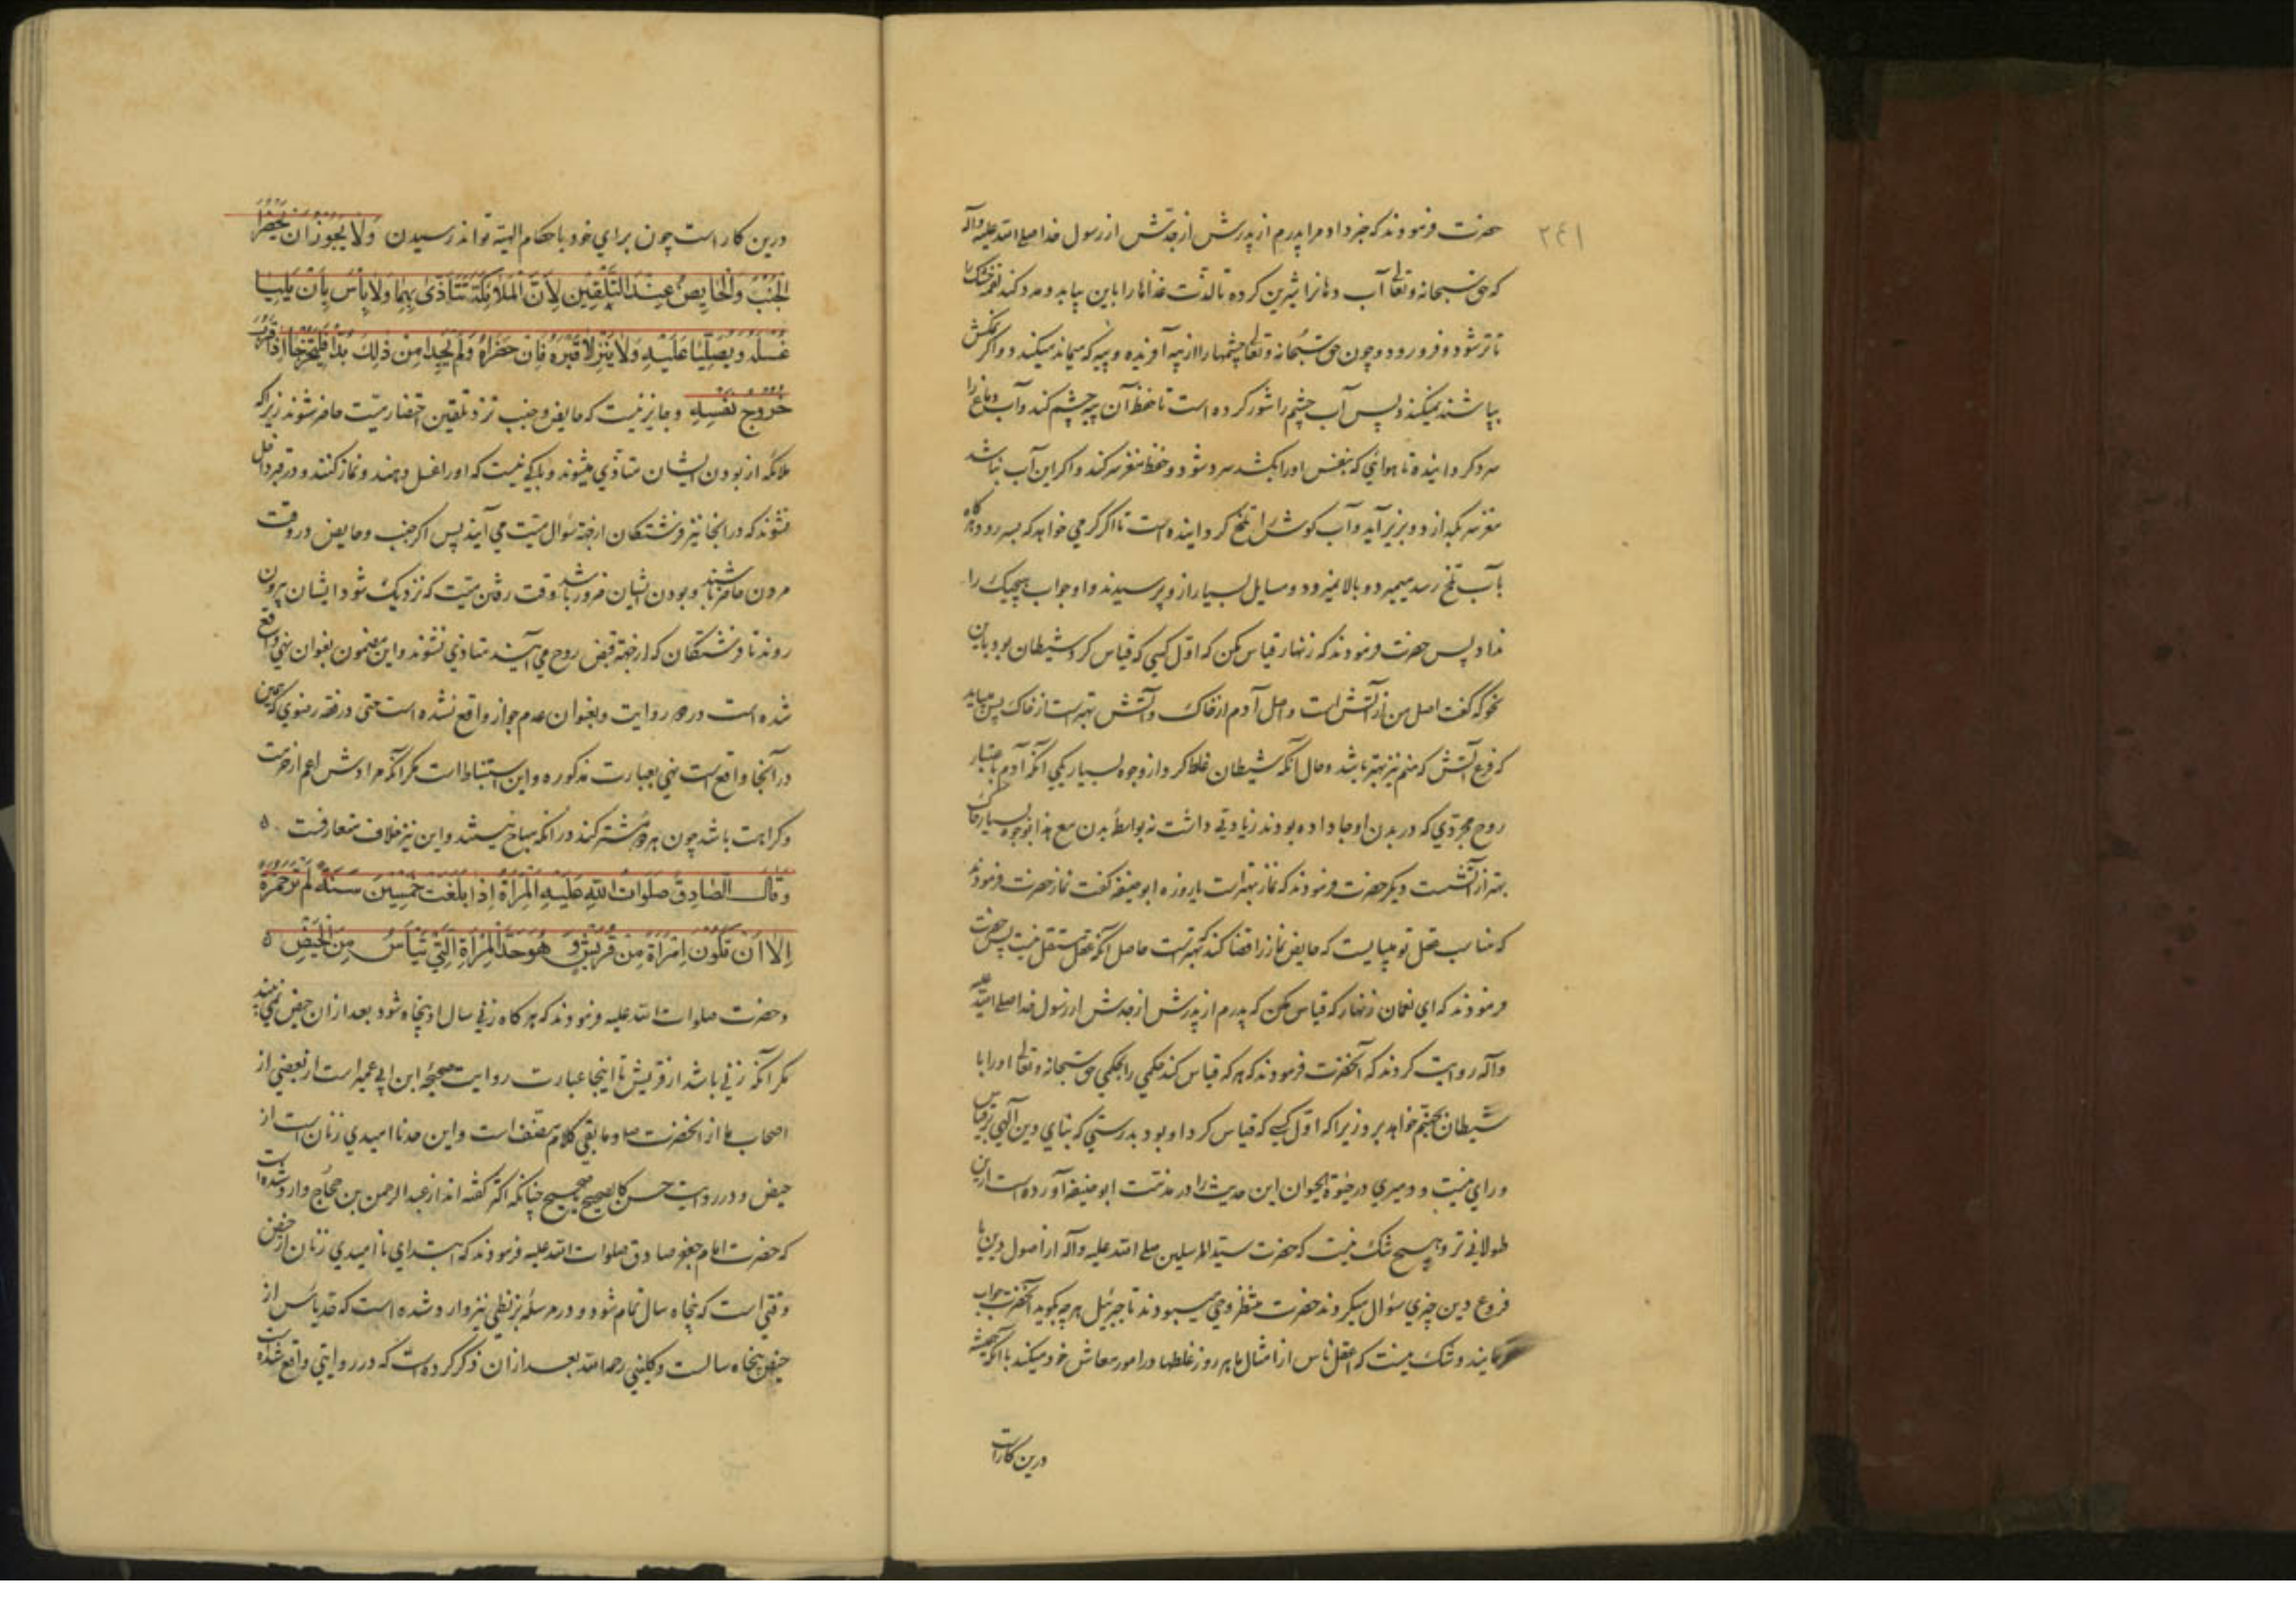 ۲٤۱
حضرت فرمودند که خبر داد مرا پدرم از پدرش از جدش از رسول خدا صلی الله علیه وآله
که حق سبحانه وتعالی آب دهانرا شیرین کرده تا لذت غذاها را باین بیابد ومدد کند لقمه خشک را
تا تر شود و فرو رود و چون حق سبحانه وتعالی چشمها را از پیه آفریده و پیه که میماند میکندد واکر نمکش
بپاشند نمیکندد پس آب چشم را شور کرده است تا حفظ آن پیه چشم کند وآب دماغ را
سرد کردانیده تا هوائی که بنفس اورا بکشد سرد شود وحفظ مغز سر کند واکر این آب نباشد
مغز سر بکدازد وبزیر آید وآب کوش را تلخ کردانیده است تا اکر کرمی خواهد که بسر رود هرکاه
بآب تلخ رسد میمیرد و بالا نمیرود ومسایل بسیار ازو پرسیدند واو جواب هیچیک را
نداد پس حضرت فرمودند که زنهار قیاس مکن که اول کسی که قیاس کرد شیطان بود باین
نحو که گفت اصل من از آتش است واصل آدم از خاک وآتش بهتر است از خاک پس میباید
که فرع آتش که منم نیز بهتر باشد وحال آنکه شیطان غلط کرد از وجوه بسیار یکی آنکه آدم باعتبار
روح مجردی که در بدن او جا داده بودند زیادتی داشت نه بواسطهٔ بدن مع هذا بوجوه بسیار خاک
بهتر از آتشست دیکر حضرت فرمودند که نماز بهتر است یا روزه ابوحنیفه گفت نماز حضرت فرمودند
که مناسب عقل تو میبایست که حایض نماز را قضا کند که بهترست حاصل آنکه عقل مستقل نیست پس حضرت
فرمودند که ای نعمان زنهار که قیاس مکن که پدرم از پدرش از جدش از رسول خدا صلی الله علیه
وآله روایت کردند که آنحضرت فرمودند که هر که قیاس کند حکمی را بحکمی حق سبحانه وتعالی اورا با
شیطان بجهنم خواهد برد زیرا که اول کسی که قیاس کرد او بود بدرستی که بنای دین الهی بر قیاس
ورای نیست و دمیری در حیوة الحیوان این حدیث را در مذمت ابوحنیفه آورده است ازین
طولانی تر وهیچ شک نیست که حضرت سید المرسلین صلی الله علیه وآله از اصول دین یا
فروع دین چیزی سؤال میکردند حضرت منتظر وحی میبودند تا جبرئیل هرچه بگوید آنحضرت جواب
فرمایند وشک نیست که اعقل ناس از امثال ما هر روز غلطها در امور معاش خود میکند با آنکه همیشه
درین کار است
درین کار است چون برای خود باحکام الهیه تواند رسیدن وَلَا یَجُوزُ اَنْ یَحْضُرَا
الْجُنُبُ وَالْحَایِضُ عِنْدَ التَّلْقِینِ لِاَنَّ الْمَلَائِکَةَ تَتَاَذّٰی بِهِمَا وَلَا بَاْسَ بِاَنْ یَلِیَا
غُسْلَهُ وَیُصَلِّیَا عَلَیْهِ وَلَا یَنْزِلَا قَبْرَهُ فَاِنْ حَضَرَاهُ وَلَمْ یَجِدَا مِنْ ذٰلِكَ بُدًّا فَلْیَخْرُجَا اِذَا قَرُبَ
خُرُوجُ نَفْسِهِ وجایز نیست که حایض وجنب نزد تلقین احتضار میت حاضر شوند زیرا که
ملائکه از بودن ایشان متأذی میشوند وباکی نیست که اورا غسل دهند ونماز کنند ودر قبر داخل
نشوند که در آنجا نیز فرشتکان از جهة سؤال میت می آیند پس اکر جنب وحایض در وقت
مردن حاضر باشند وبودن ایشان ضرور باشد وقت رفتن میت که نزدیک شود ایشان بیرون
روند تا فرشتکان که از جهة قبض روح می آیند متأذی نشوند واین مضمون بعنوان نهی واقع
شده است در دو روایت وبعنوان عدم جواز واقع نشده است حتی در فقه رضوی که همین
در آنجا واقع است نهی بعبارت مذکوره واین استنباط است مکر آنکه مرادش اعم از حرمت
وکراهت باشد چون هر دو مشترکند در آنکه مباح نیستند واین نیز خلاف متعارفست ه
وَقَالَ الصَّادِقُ صَلَوَاتُ اللهِ عَلَیْهِ الْمَرْاَةُ اِذَا بَلَغَتْ خَمْسِینَ سَنَةً لَمْ تَرَ حُمْرَةً
اِلَّا اَنْ تَکُونَ امْرَاَةً مِنْ قُرَیْشٍ وَ هُوَ حَدُّ الْمَرْاَةِ الَّتِی تَیْاَسُ مِنَ الْحَیْضِ ه
وحضرت صلوات الله علیه فرمودند که هر کاه زنی سال او پنجاه شود بعد از آن حیض نمی بیند
مکر آنکه زنی باشد از قریش تا اینجا عبارت روایت صحیحهٔ ابن ابی عمیر است از بعضی از
اصحاب ما از آنحضرت ص وما بقی کلام مصنف است واین حد ناامیدی زنان است از
حیض ودر روایت حسن کالصحیح صحیح چنانکه اکثر گفته اند از عبد الرحمن بن حجاج وارد شده است
که حضرت امام جعفر صادق صلوات الله علیه فرمودند که ابتدای ناامیدی زنان از حیض
وقتی است که پنجاه سال تمام شود ودر مرسلهٔ بزنطی نیز وارد شده است که حد یأس از
حیض پنجاه سالست وکلینی رحمه الله بعد از آن ذکر کرده است که در روایتی واقع شده است